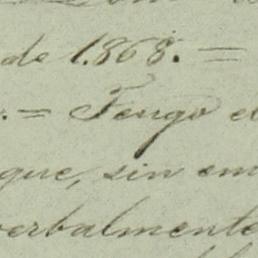 de 1.868. =
. = Tengo el
que, sin em
verbalmente